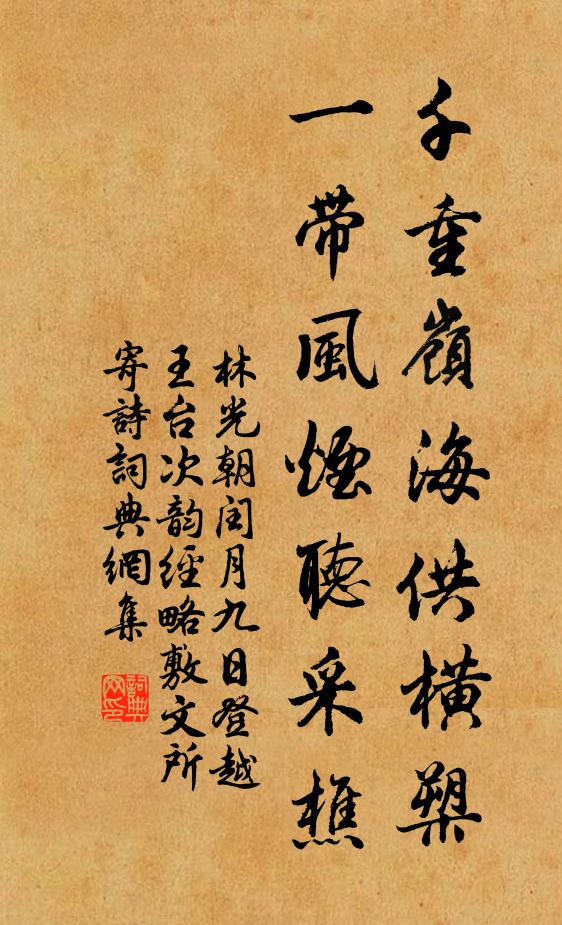 千重嶺海供橫槊
一帶風煙聽采樵
林光朝閏月九日登越
王台次韵經略敷文所
寄詩詞典網集
詞典網印